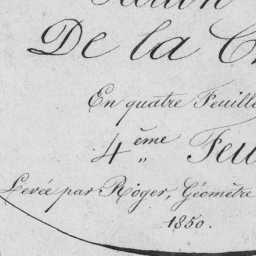 De la C
En quatre Feuill
4ème Feu
Levée par Roger, Géomètre
1850.